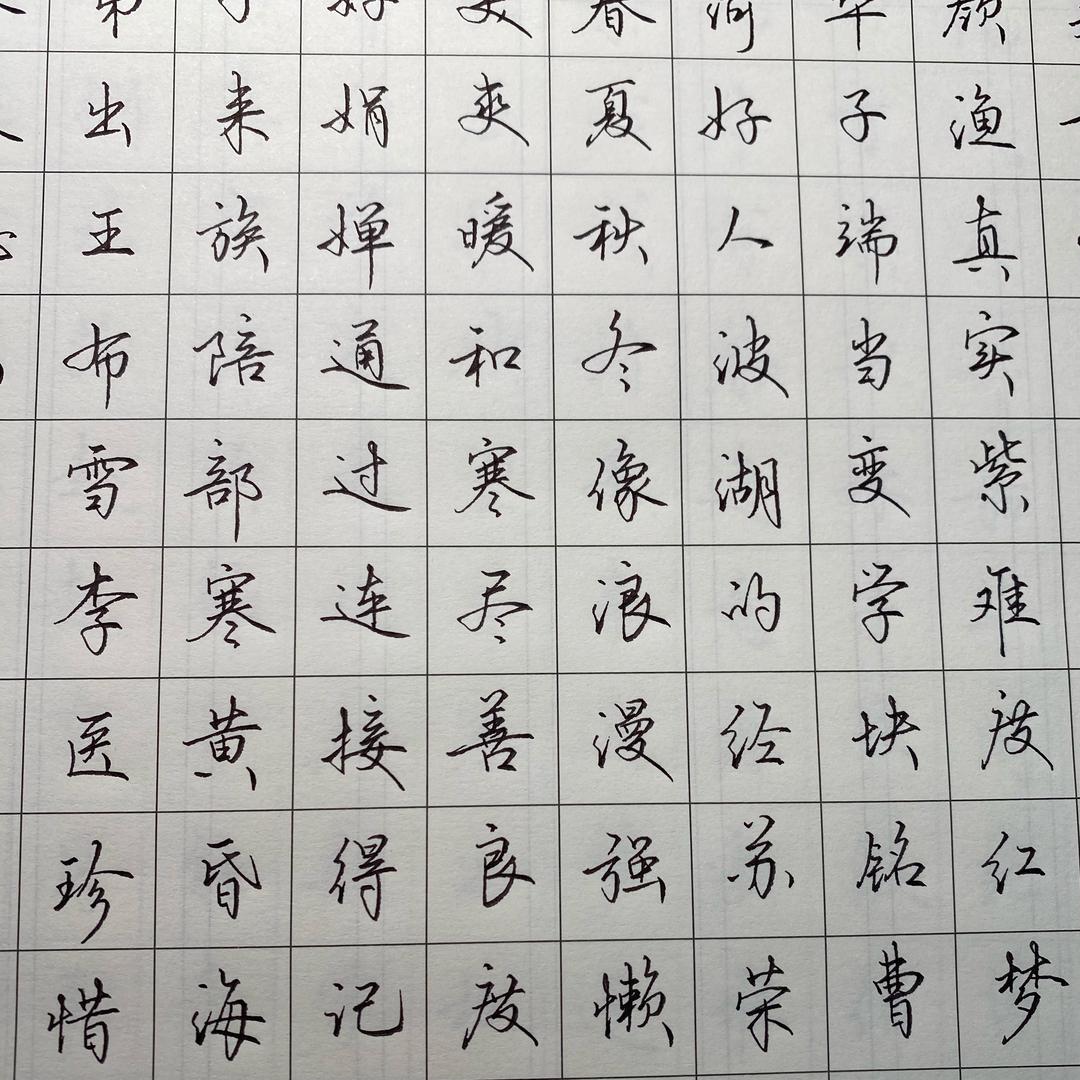 弟 子 好 美 春 河 华 颜
出 来 娟 爽 夏 好 子 渔
王 族 婵 暖 秋 人 端 真
布 陪 通 和 冬 波 当 实
雪 部 过 寒 像 湖 变 紫
李 寒 连 尽 浪 的 学 难
医 黄 接 善 漫 经 块 度
珍 昏 得 良 强 苏 铭 红
惜 海 记 度 懒 荣 曹 梦